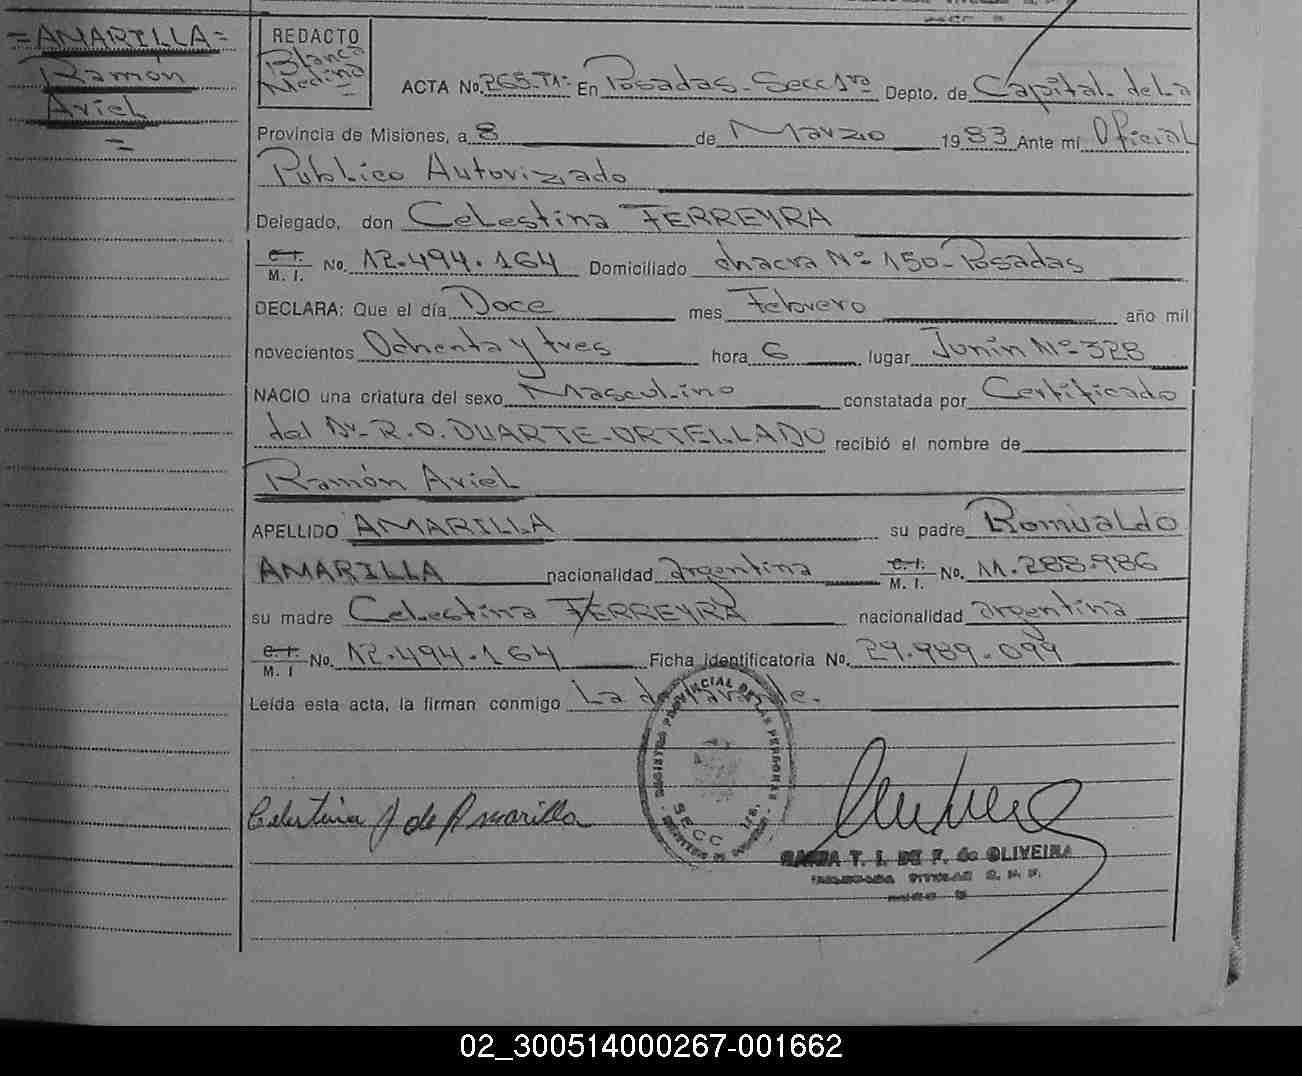 =AMARILLA=
Ramón
Ariel
=
REDACTO
Blanca
Medina
ACTA No. 265-T1- En Posadas-Secc 1ra Depto. de Capital de la
Provincia de Misiones, a 8 de Marzo 1983 Ante mí Oficial
Público Autorizado
Delegado, don Celestina FERREYRA
C. I. M. I. No. 12.494.164 Domiciliado chacra Nº 150-Posadas
DECLARA: Que el día Doce mes Febrero año mil
novecientos Ochenta y tres hora 6 lugar Junin Nº-328
NACIO una criatura del sexo Masculino constatada por Certificado
del Dr. R.O. DUARTE-ORTELLADO recibió el nombre de
Ramón Ariel
APELLIDO AMARILLA su padre Romualdo
AMARILLA nacionalidad argentina C. I. M. I. No. 11.288.986
su madre Celestina FERREYRA nacionalidad argentina
C. I. M. I No. 12.494.164 Ficha identificatoria No. 29.989.099
Leída esta acta, la firman conmigo La declarante.
REGISTRO PROVINCIAL DE LAS PERSONAS
SECC 1ra.
Celestina F de Amarilla
T. I. DE F. de OLIVEIRA
02_300514000267-001662